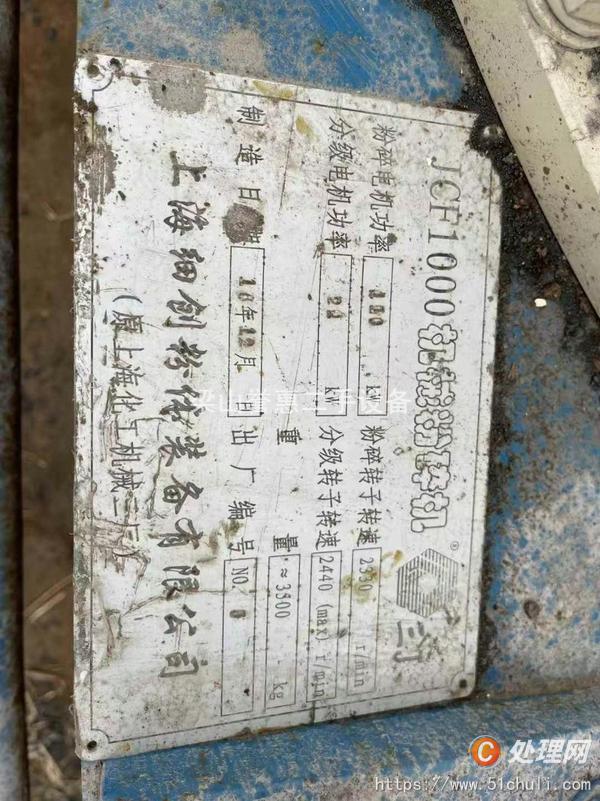 JCF1000机械粉碎机
三门
®
粉碎电机功率 110 kW 粉碎转子转速 2330 r/min
分级电机功率 22 kW 分级转子转速 2440 (max) r/min
重 量 ≈3500 kg
制造日期 10年12月 日 出厂编号 NO.
上海细创粉体装备有限公司
(原上海化工机械二厂)
梁山 惠二手设备
C 处理网
https://www.51chuli.com